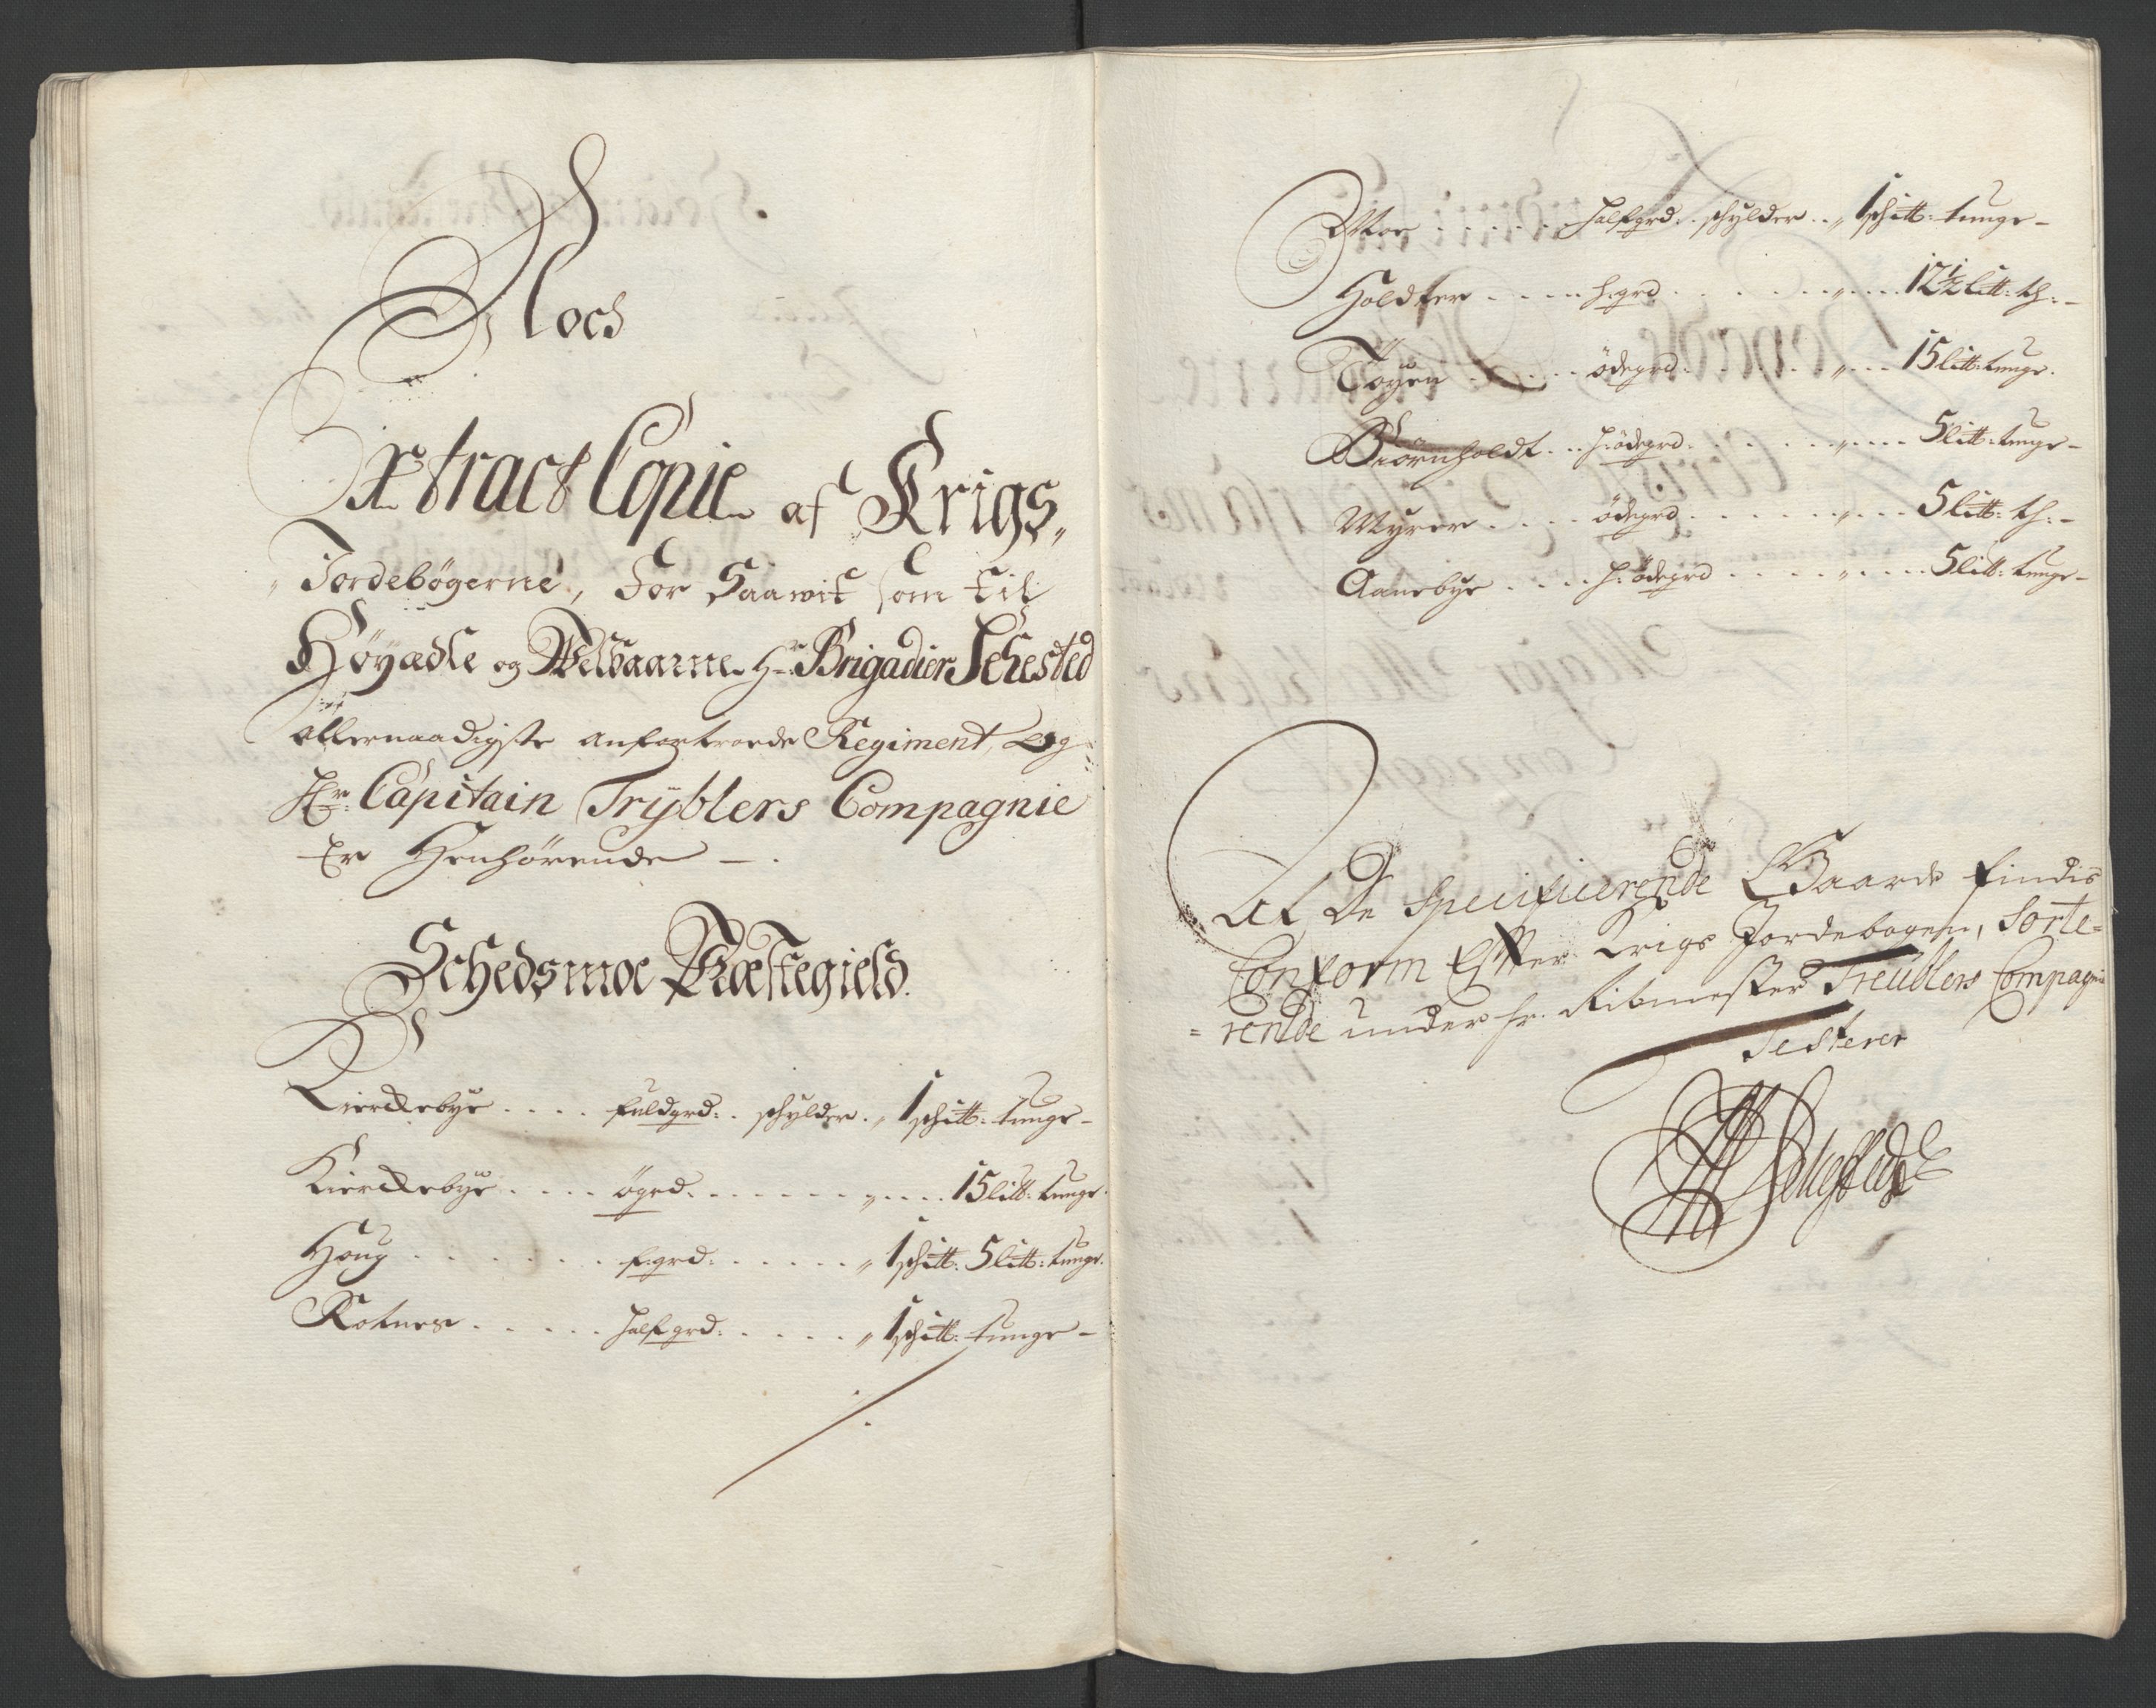 Noch
Extract Copie af Krigs„
„Jordebøgerne, For Saawit som til
Høyædle og Welbaarne Hr Brigadier Sehested
allernaadigste anfortroede Regiment, og
Hr: Capitain Trÿblers Compagnie
Er Henhørende —.
Schedsmoe Præstegield.
Kierckebÿe .... fuldgrd: . schylder . „ 1 schitt: tunge –
Kierckebÿe .... ögrd. ...... „ .... 15 litt: tunge.
Houg ....... f:grd: ...... „ 1 schitt: 5 litt: tunge.
Rotnes ..... halfgrd: ..... „ 1 schitt: tunge –
Moe ...... halfgrd: . schylder .. „ 1 schitt: tunge –
Holdter .... h:grd ...... „ .... 12½ litt: th: –
Töÿen ..... ödegrd. ..... „ ... 15 litt: tunge.
Biörnholdt .. h:ödegrd. ..... „ .... 5 litt: tunge –
Myrer .... ödegrd ...... „ ... 5 litt: th: –
Aanebye .... h:ödegrd .... „ .... 5 litt: tunge –
At De Specificerende Gaarde findis
Conform Efter Krigs Jordebogen, Sorte=
=rende under hr. Ritmester Treüblers Compagni
Testerer
Sehested